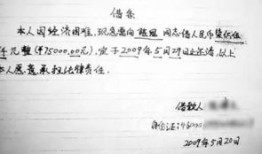 借条
本人因经济困难,现急需向 同志借人民币柒仟伍
仟元整(¥75000.00元),定于2009年5月29日还清,以上
本人愿意承担法律责任。
借款人
身份证:
2009年5月20日